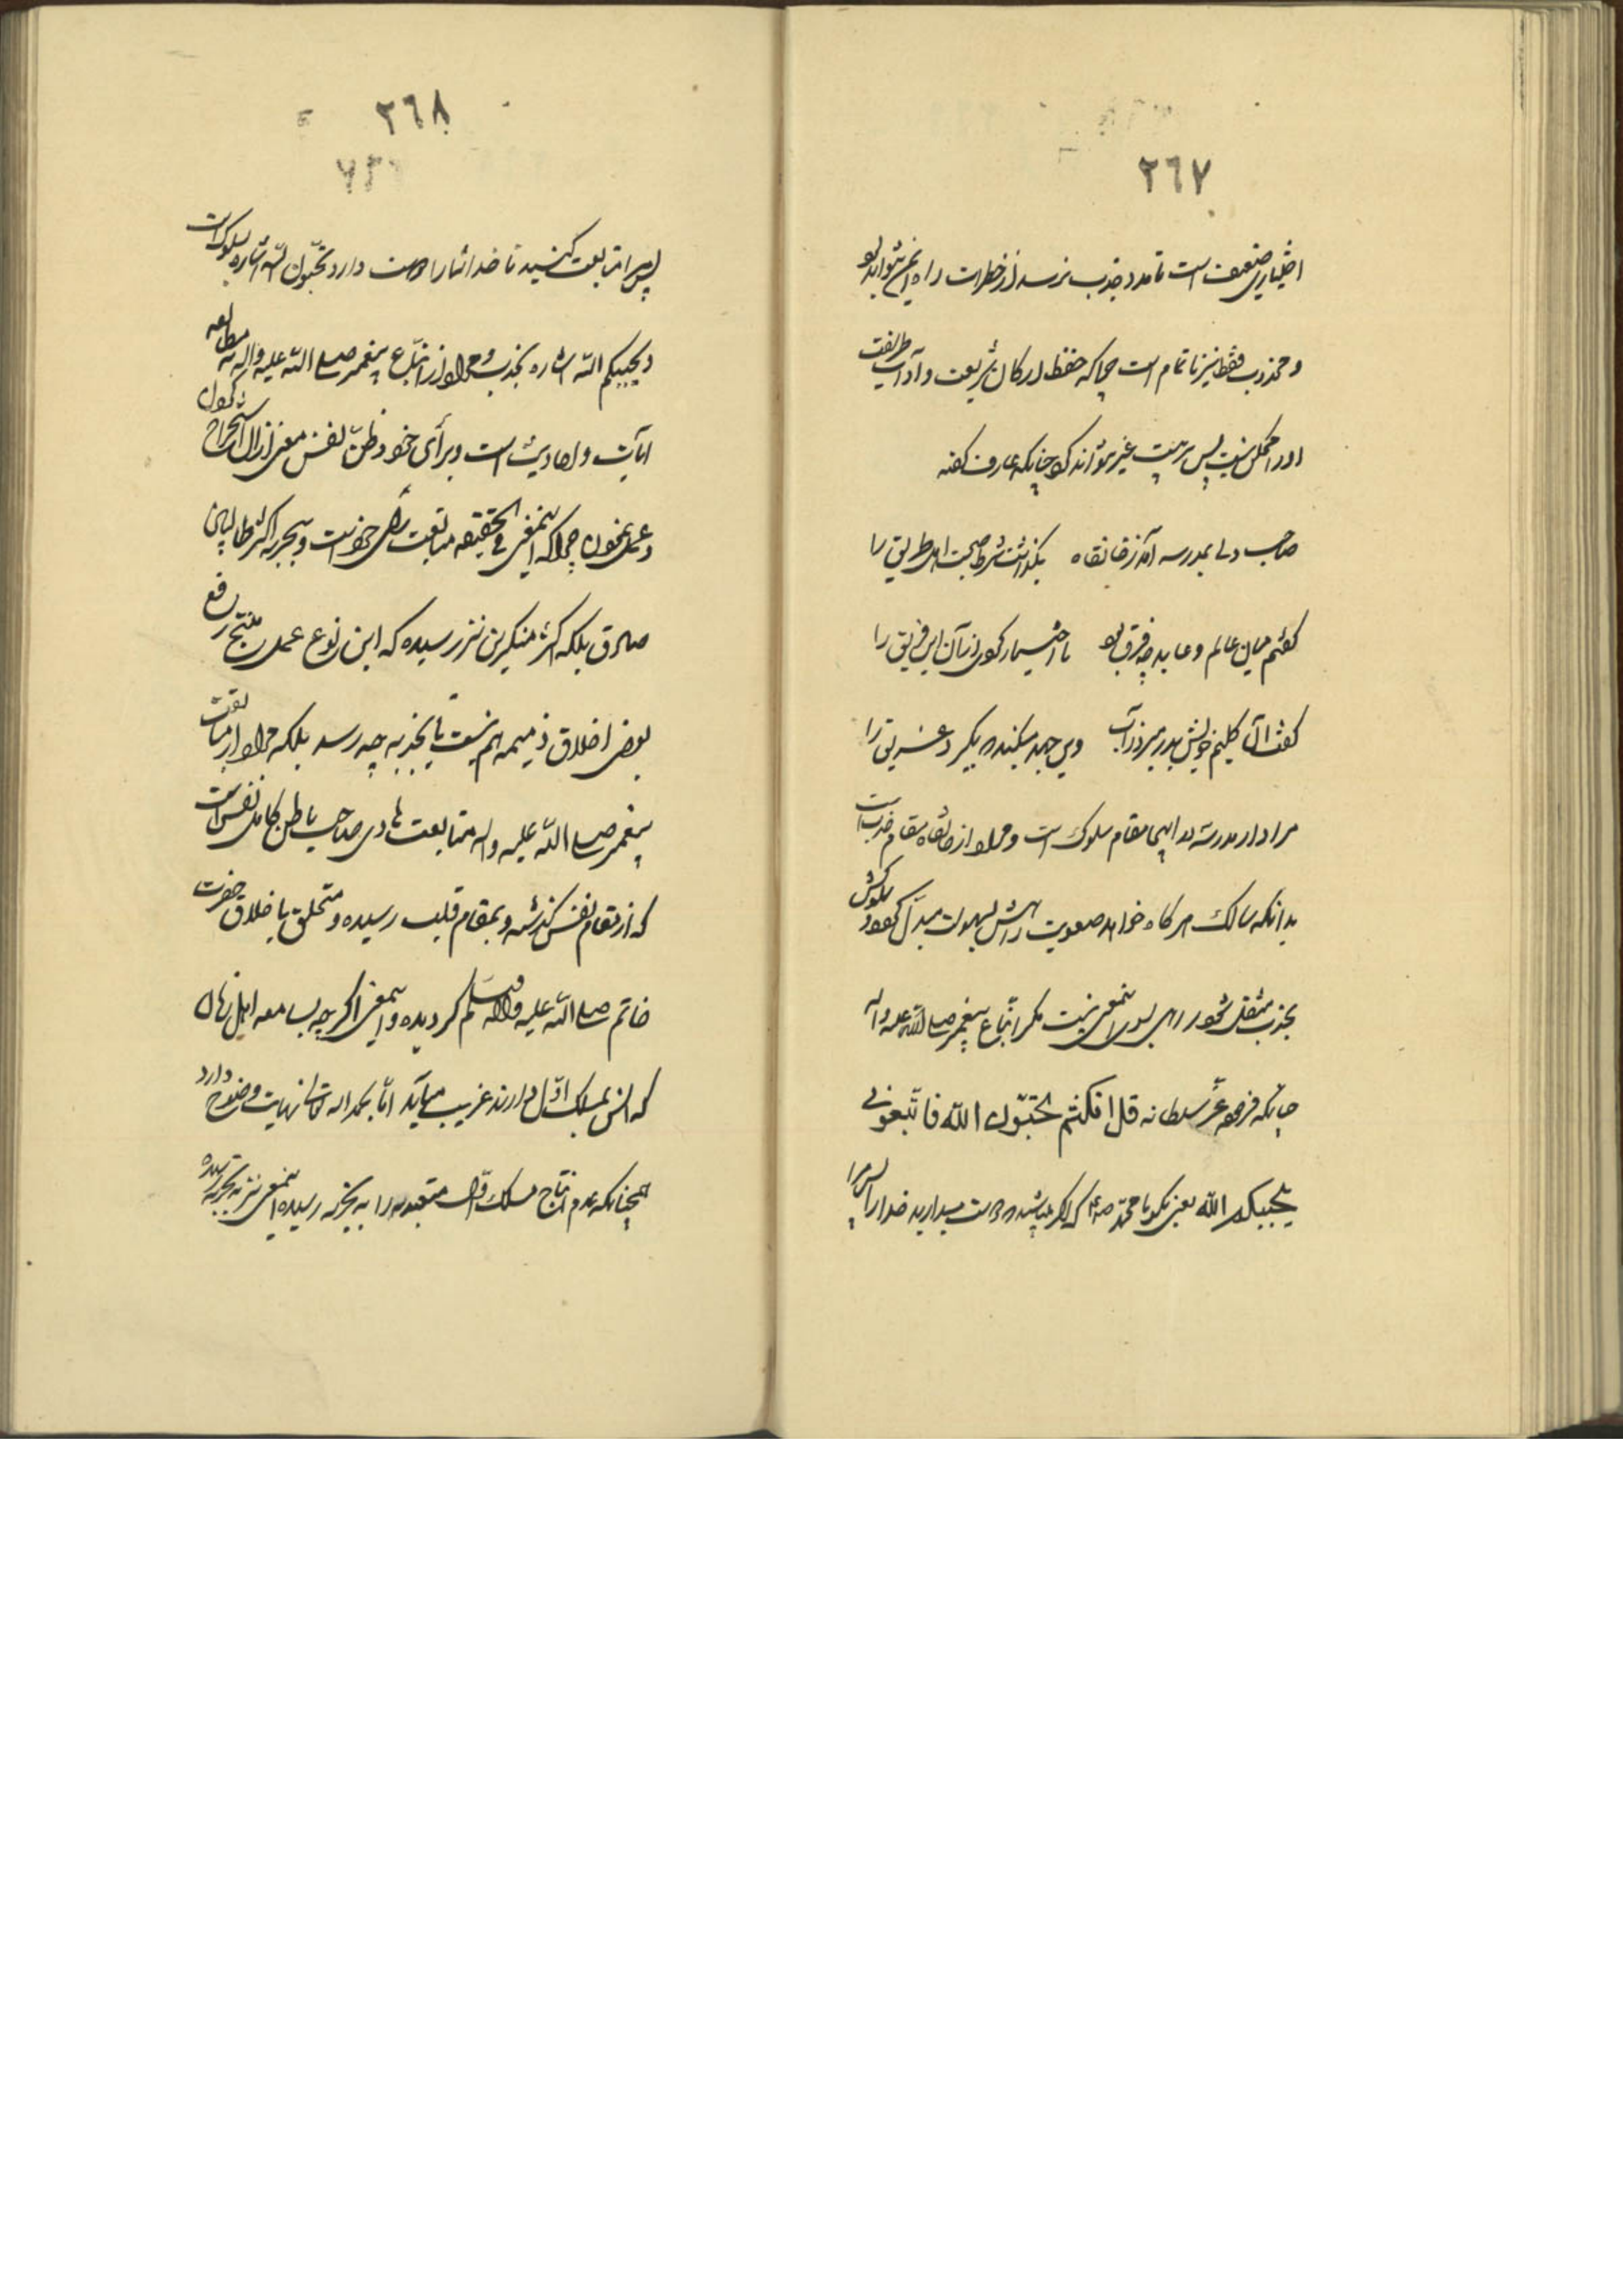 ٢٦٧
اختیاری ضعیف است تا مدد جذب نرسد از خطرات راه ایمن نتواند بود
و مجذوب فقط نیز ناتمام است چرا که حفظ ارکان شریعت و آداب طریقت
او را ممکن نیست پس تربیت غیر نتواند کرد چنانکه عارف گفته
صاحب دلی بمدرسه آمد ز خانقاه بگذاشت شرط صحبت اهل طریق را
گفتم میان عالم و عابد چه فرق بود تا اختیار کردی از آن این فریق را
گفت آن گلیم خویش بدر میبرد ز آب وین جهد میکند که بگیرد غریق را
مراد از مدرسه در اینجا مقام سلوک است و مراد از خانقاه مقام جذب است
بدانکه سالک هرگاه خواهد صعوبت راهش بسهولت مبدل گردد و سلوکش
بجذب منتقل شود راهی بدین معنی نیست مگر اتباع پیغمبر صلی الله علیه واله
چنانکه فرموده عز سلطانه قل ان کنتم تحبون الله فاتبعونی
یحببکم الله یعنی بگو یا محمد که اگر میباشید که دوست میدارید خدا را پس مرا
٢٦٨
پس مرا متابعت کنید تا خدا شما را دوست دارد تحبون الله اشاره بسلوک است
و یحببکم الله اشاره بجذب و مراد از اتباع پیغمبر صلی الله علیه واله نه مطالعه
آیات و احادیث است و برأی خود و ظن نفس معنی از آن استخراج کردن
و عمل نمودن چرا که اینمعنی فی الحقیقه متابعت رأی خود است و بتجربه اکثر طالبان
صادق بلکه اکثر منکرین نیز رسیده که این نوع عمل منتج رفع
بعض اخلاق ذمیمه هم نیست تا بجذبه چه رسد بلکه مراد از متابعت
پیغمبر صلی الله علیه واله متابعت هادی صاحب باطن کامل نفس است
که از مقام نفس گذشته و بمقام قلب رسیده و متخلق باخلاق حضرت
خاتم صلی الله علیه واله وسلم گردیده و اینمعنی اگر چه بسامعه اهل زمان
که انس بمسلک اول دارند غریب میآید اما بحمدالله نهایت وضوح دارد
همچنانکه عدم انتاج مسلک اول متعبدین را به تجربه رسیده اینمعنی نیز به تجربه رسیده